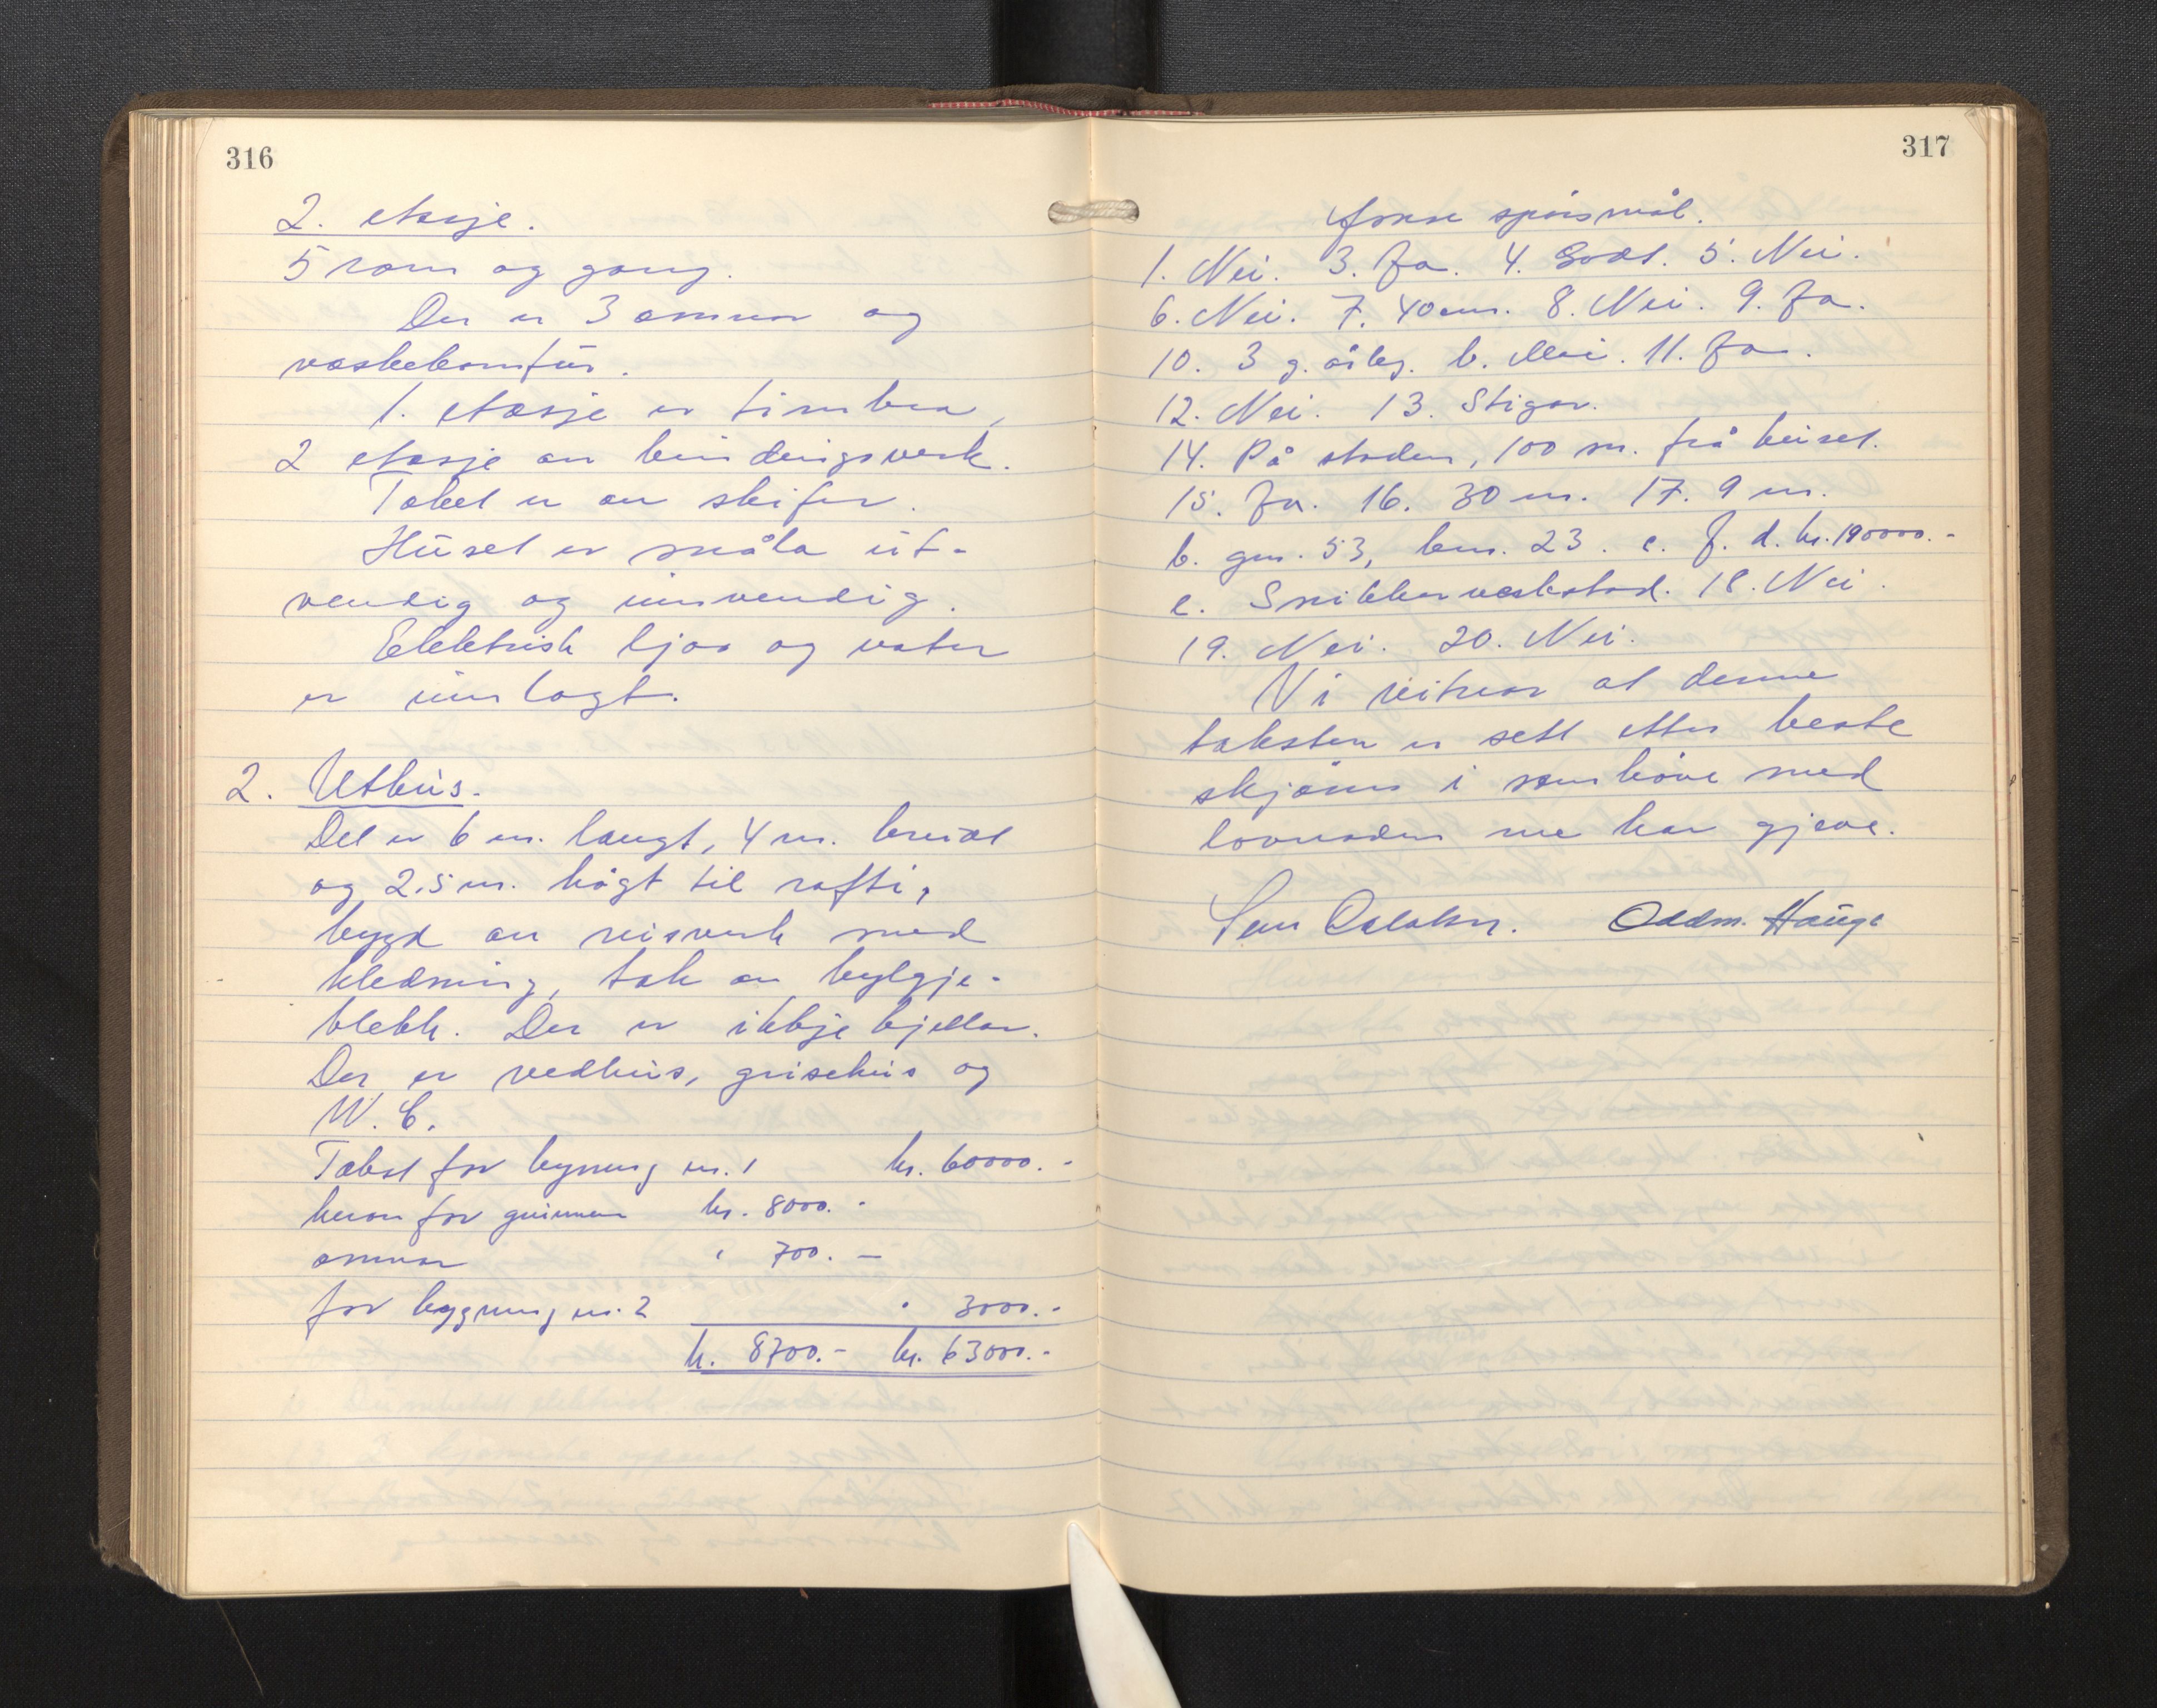 316
2. etasje.
5 rom og gang.
Der er 3 omnar og
vaskekomfür.
1. etasje er timbra,
2 etasje av bindingsverk.
Taket er av skifer.
Hüset er måla üt-
vendig og innvendig.
Elektrisk ljos og vatn
er innlagt.
2. Uthüs.
Det er 6 m. langt, 4 m. breidt
og 2.5 m. högt til rafti,
bygd av reisverk med
kledning, tak av bylgje-
blekk. Der er ikkje kjellar.
Der er vedhüs, grisehüs og
W. C.
Takst for bygning nr. 1 kr. 60000.-
herav for grünmur kr. 8000.-
omnar " 700.-
for bygning nr. 2 " 3000.-
kr. 8700.- kr. 63000.-
317
spörsmål.
1. Nei. 3. Ja. 4. Godt. 5. Nei.
6. Nei. 7. 40 cm. 8. Nei. 9. Ja.
10. 3 g. årleg. b. Nei. 11. Ja.
12. Nei. 13. Stigar.
14. På staden, 100 m. frå hüset.
15. Ja. 16. 30 m. 17. 9 m.
b. gnr. 53, bnr. 23. c. J. d. kr. 190000.-
e. Snikkarverkstad. 18. Nei.
19. Nei. 20. Nei.
Vi vitnar at denne
taksten er sett etter beste
skjönn i samhöve med
lovnaden me har gjeve.
Oddm. Haüge